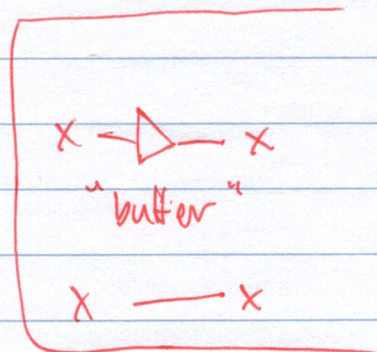 X X
"buffer"
X X